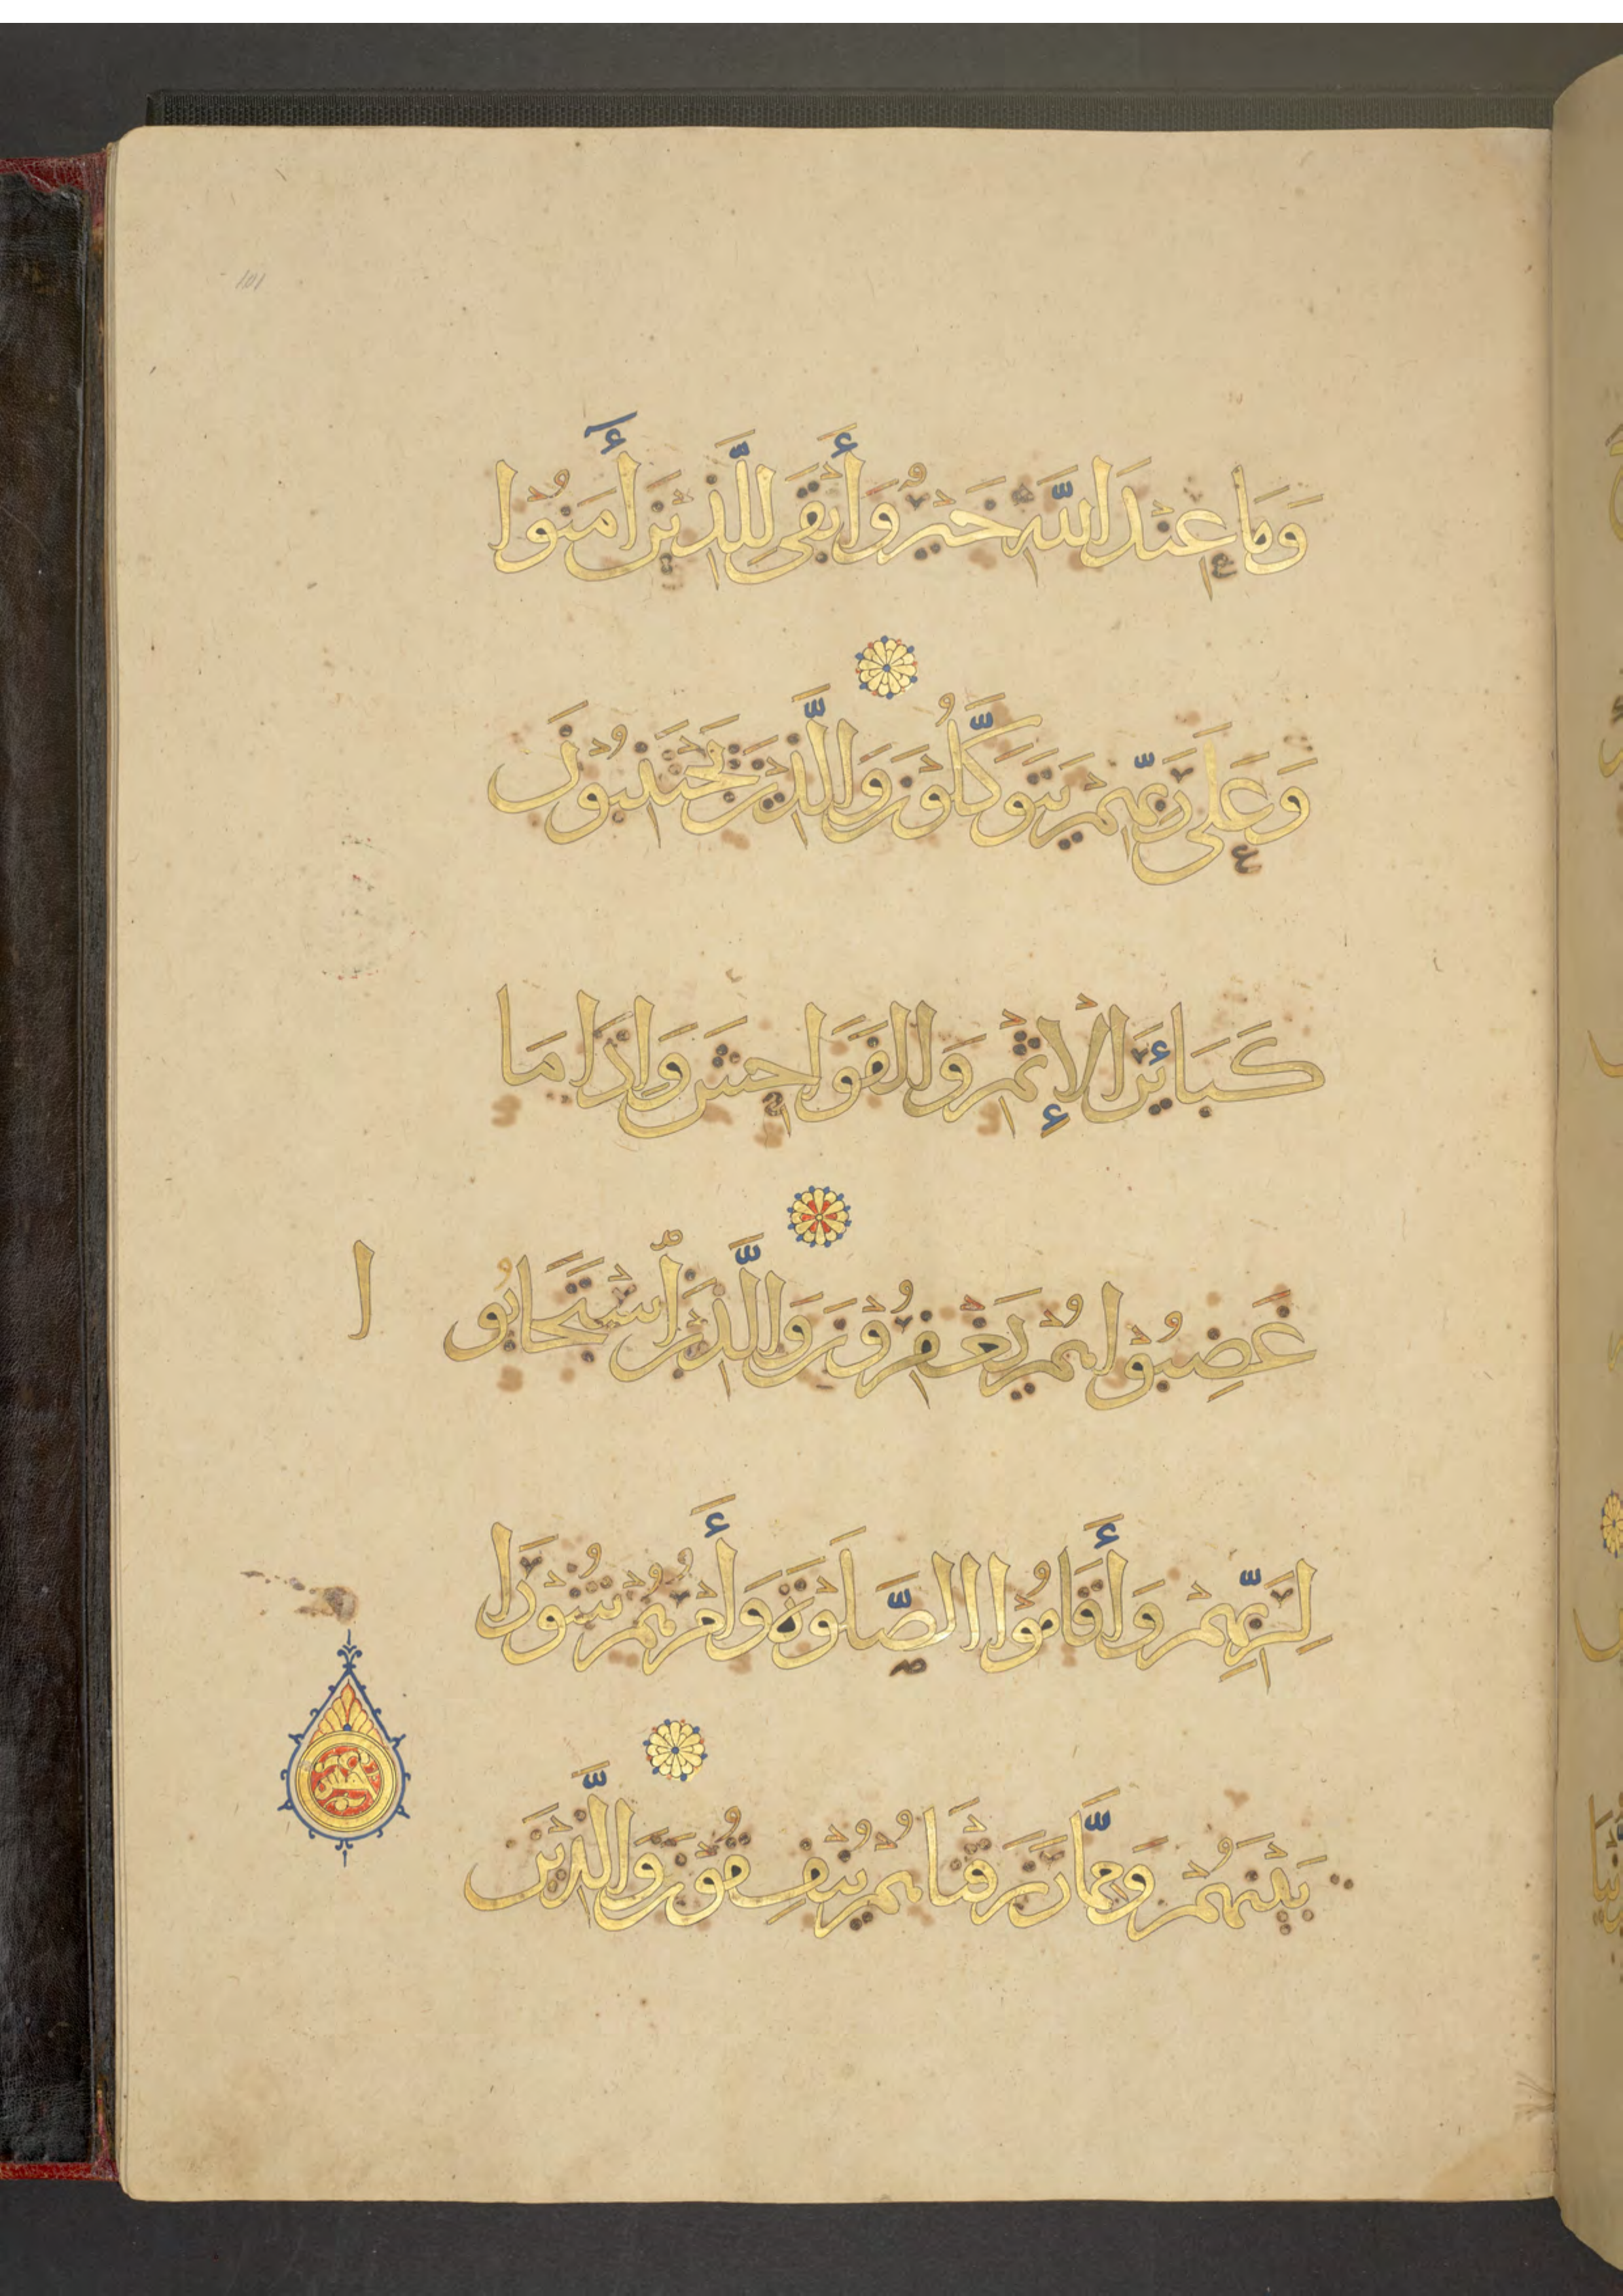 101
وَمَا عِنْدَ اللَّهِ خَيْرٌ وَأَبْقَى لِلَّذِينَ أَمَنُوْا
وَعَلَى رَبِّهِمْ يَتَوَكَّلُوْنَ وَالَّذِينَ يَجْتَنِبُوْنَ
كَبَائِرَ الْإِثْمِ وَالْفَوَاحِشَ وَإِذَا مَا
غَضِبُوْا هُمْ يَغْفِرُوْنَ وَالَّذِينَ ٱسْتَجَابُو ا
لِرَبِّهِمْ وَأَقَامُوا الصَّلَوٰةَ وَأَمْرُهُمْ شُوْرَا
بَيْنَهُمْ وَمِمَّا رَزَقْنَاهُمْ يُنْفِقُوْنَ وَالَّذِينَ